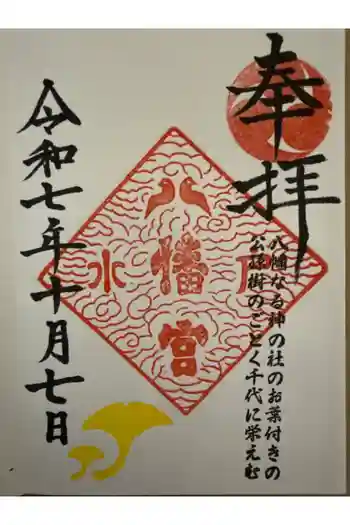 奉拝
八幡なる神の社のお葉付きの
公孫樹のごとく千代に栄えむ
水戸
八幡宮
令和七年十月七日